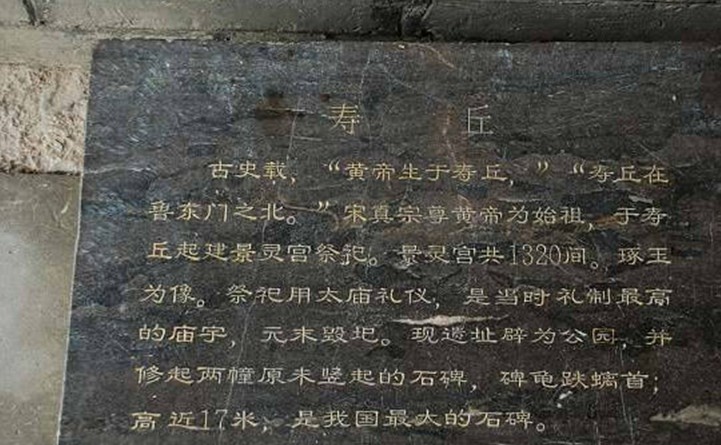 寿 丘
古史载，“黄帝生于寿丘，”“寿丘在
鲁东门之北。”宋真宗尊黄帝为始祖，于寿
丘起建景灵宫祭祀。景灵宫共1320间。琢玉
为像。祭祀用太庙礼仪，是当时礼制最高
的庙宇，元末毁圮。现遗址辟为公园，并
修起两幢原未竖起的石碑，碑龟趺螭首；
高近17米，是我国最大的石碑。